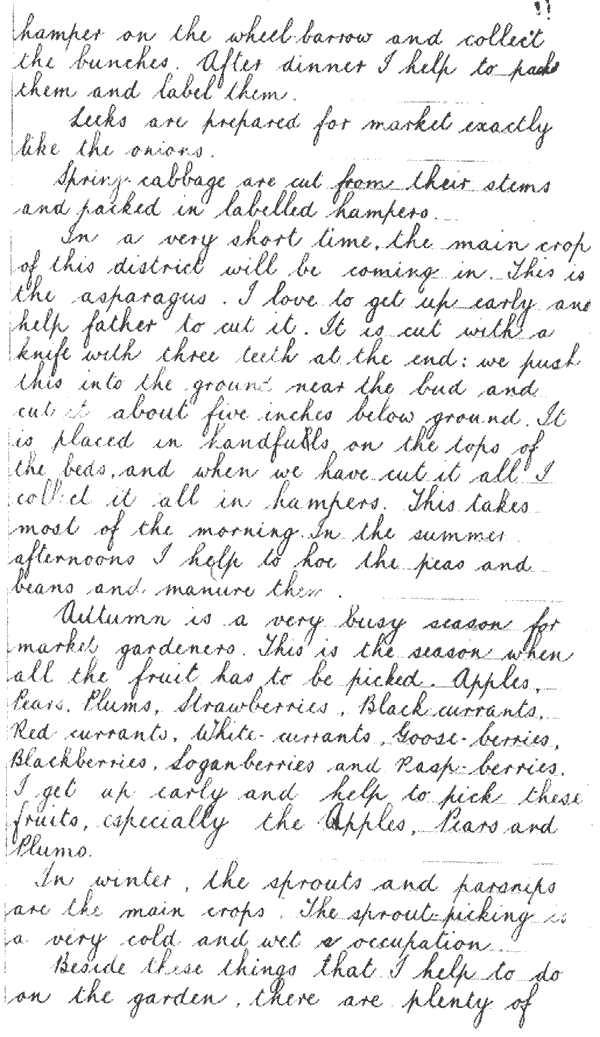 11
hamper on the wheel-barrow and collect
the bunches. After dinner I help to pack
them and label them.
Leeks are prepared for market exactly
like the onions.
Spring-cabbage are cut from their stems
and packed in labelled hampers.
In a very short time, the main crop
of this district will be coming in. This is
the asparagus. I love to get up early and
help father to cut it. It is cut with a
knife with three teeth at the end: we push
this into the ground near the bud and
cut it about five inches below ground. It
is placed in handfulls on the tops of
the beds, and when we have cut it all I
collect it all in hampers. This takes
most of the morning. In the summer
afternoons I help to hoe the peas and
beans and manure them.
Autumn is a very busy season for
market gardeners. This is the season when
all the fruit has to be picked. Apples,
Pears, Plums, Strawberries, Black currants,
Red currants, White-currants, Goose-berries,
Blackberries, Loganberries and Rasp-berries.
I get up early and help to pick these
fruits, especially the Apples, Pears and
Plums.
In winter, the sprouts and parsnips
are the main crops. The sprout-picking is
a very cold and wet occupation.
Beside these things that I help to do
on the garden, there are plenty of